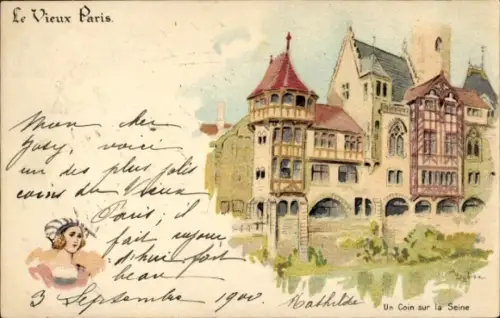 Le Vieux Paris.
Mon cher
Gasy, voici
un des plus jolis
coins du Vieux
Paris; il
fait aujour
d'hui fort
beau
3 Septembre 1900.
Mathilde
Un Coin sur la Seine